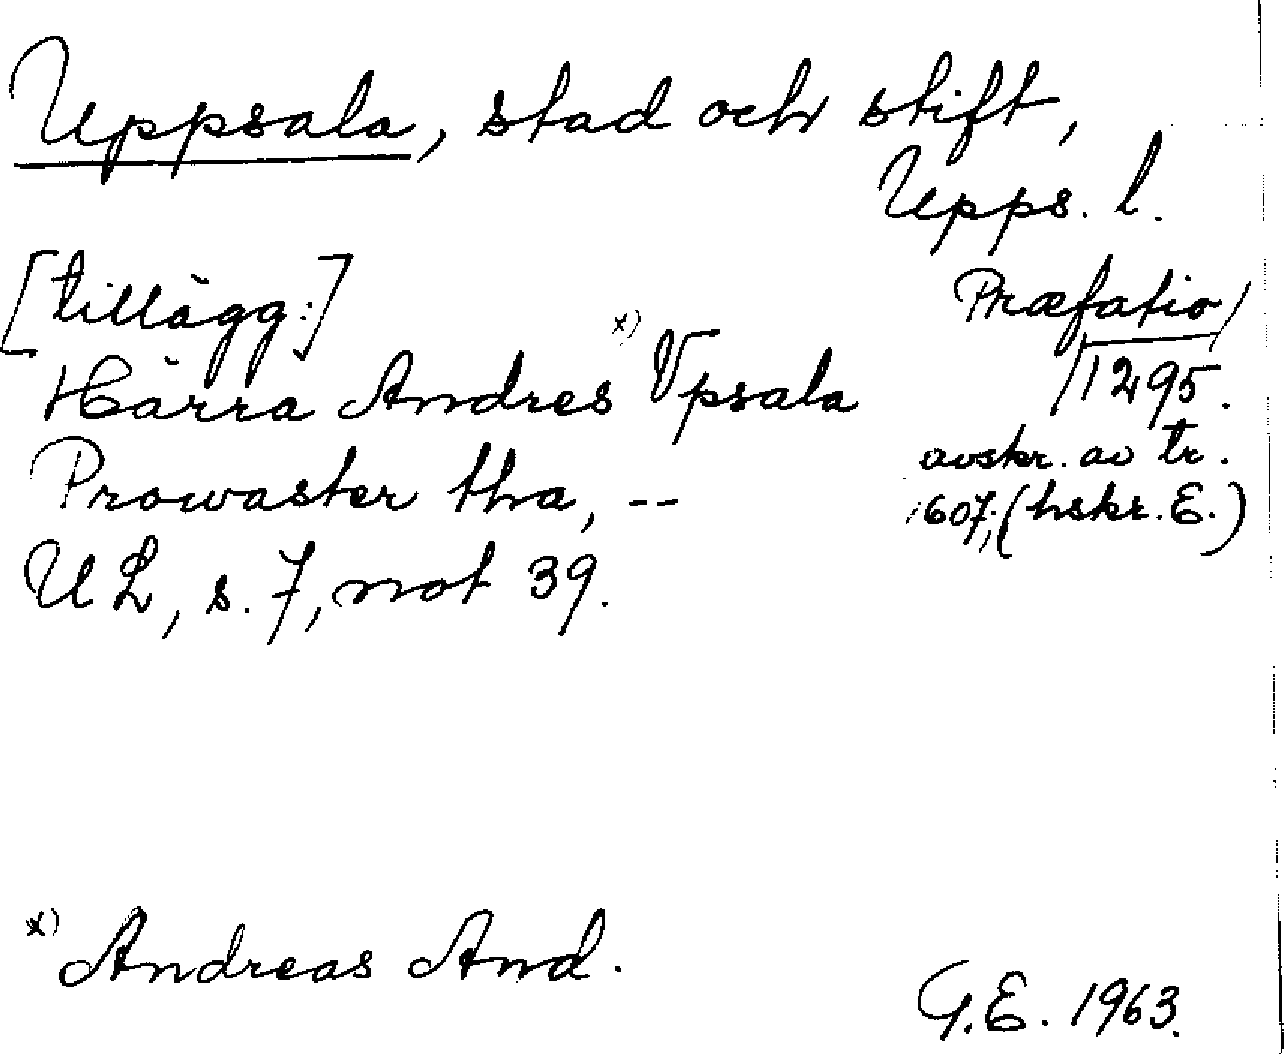 Uppsala, stad och stift,
Upps. l.
[tillägg:]
Præfatio/
Härra Andres x) Vpsala
/1295.
Prowaster tha, --
avskr. av tr.
1607, (hskr. E.)
UL, s. 7, not 39.
x) Andreas And.
G.E. 1963.